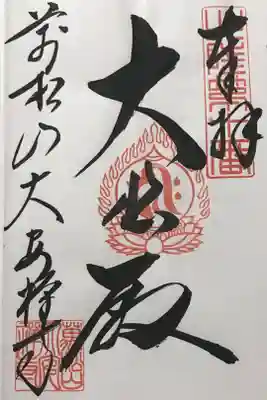 奉拝
大悲殿
萬松山大安禅寺